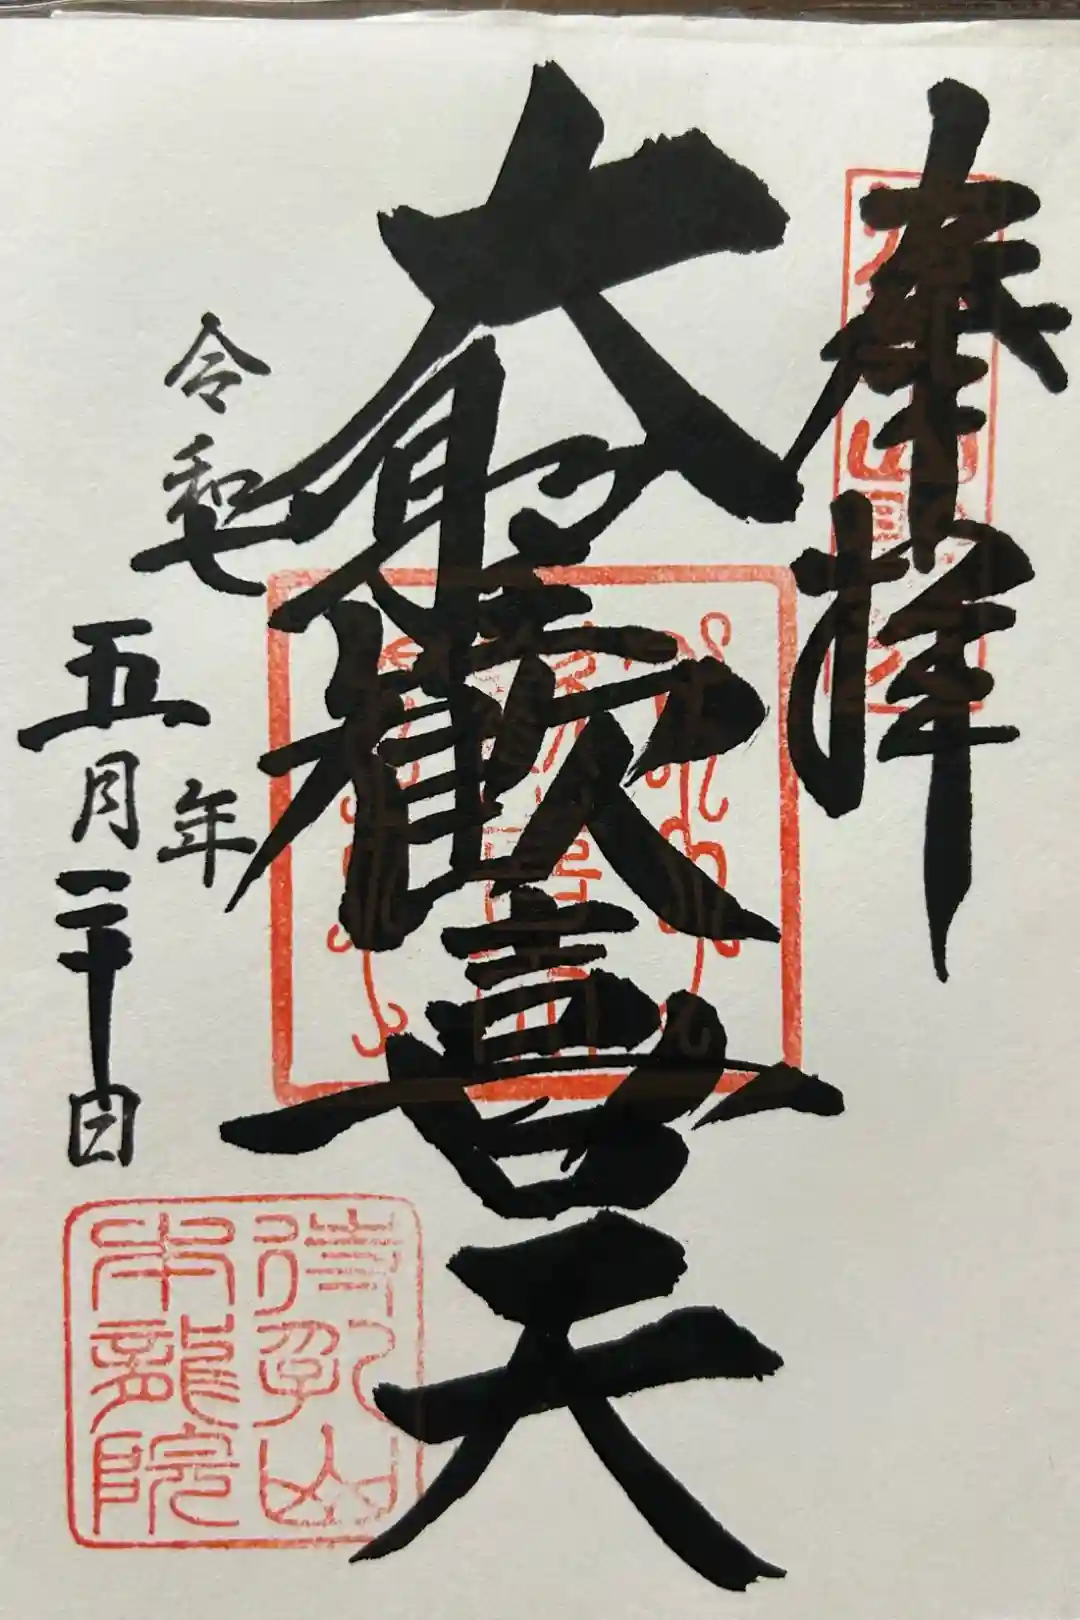 奉拝
大聖歓喜天
令和七年
五月二十日
待乳山
本龍院